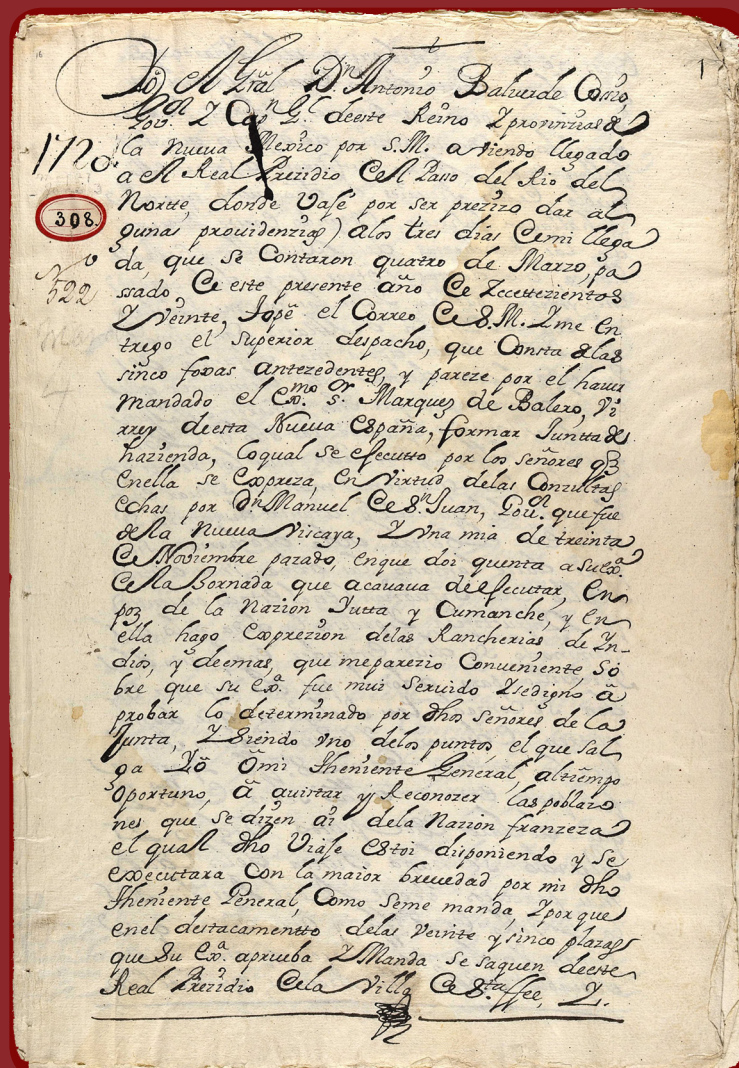 Yo, el Gral Dn Antonio Balverde Cosio,
Govor. Y Capn Gl. deeste Reino Y provinzias de
1720. la Nueva Mexico por S.M. aviendo llegado
a el Real Prezidio Cel Passo del Rio del
308. Nortte, donde Vajé por ser prezizo dar al
gunas providenzias) alos tres dias Cemi llega
da, que se Contaron quatro de Marzo, pa
522 ssado Ce este presente año Ce Zecettezientos
Y Veinte, Topé el Correo Ce S.M. Y me En
trego el superior despacho, que Consta delas
sinco foxas antezedentes, y pareze por el haver
mandado el Exmo. sor. Marques de Balero, Vi
rrey deesta Nueva España, formar Juntta de
hazienda, loqual se efecutto por los señores qe
Enella se Expreza, En Virtud delas Conzulttas
echas por Dn Manuel Ce Sn Juan, Govor. que fue
dela Nueva Viscaya, Y Una mia de treinta
Ce Noviembre pazado, enque doi quenta a su Exa.
Cela Jornada que acavava de efecuttar, En
poz de la Nazion Yutta y Cumanche, y En
ella hago Exprezion delas Rancherias de Yn-
dios, y deemas, que meparezio Conveniente, So
bre que su Exa. fue mui servido Y sedigno a
probar lo determinado por dhos señores de la
Junta, Y Siendo vno delos puntos, el que sal
ga Yo o mi Theniente General, al tiempo
oportuno, a avistar y Reconozer las poblazio
nes que se dizen ai dela Nazion franzeza
el qual dho Viaje Estoi disponiendo y se
executara Con la maior brevedad por mi dho
Theniente General, Como seme manda, Y porque
enel destacamentto delas veinte y sinco plazas
que Su Exa. aprueba Y Manda se saquen deeste
Real Prezidio Cela Villa Ce Sta. ffee, Y.